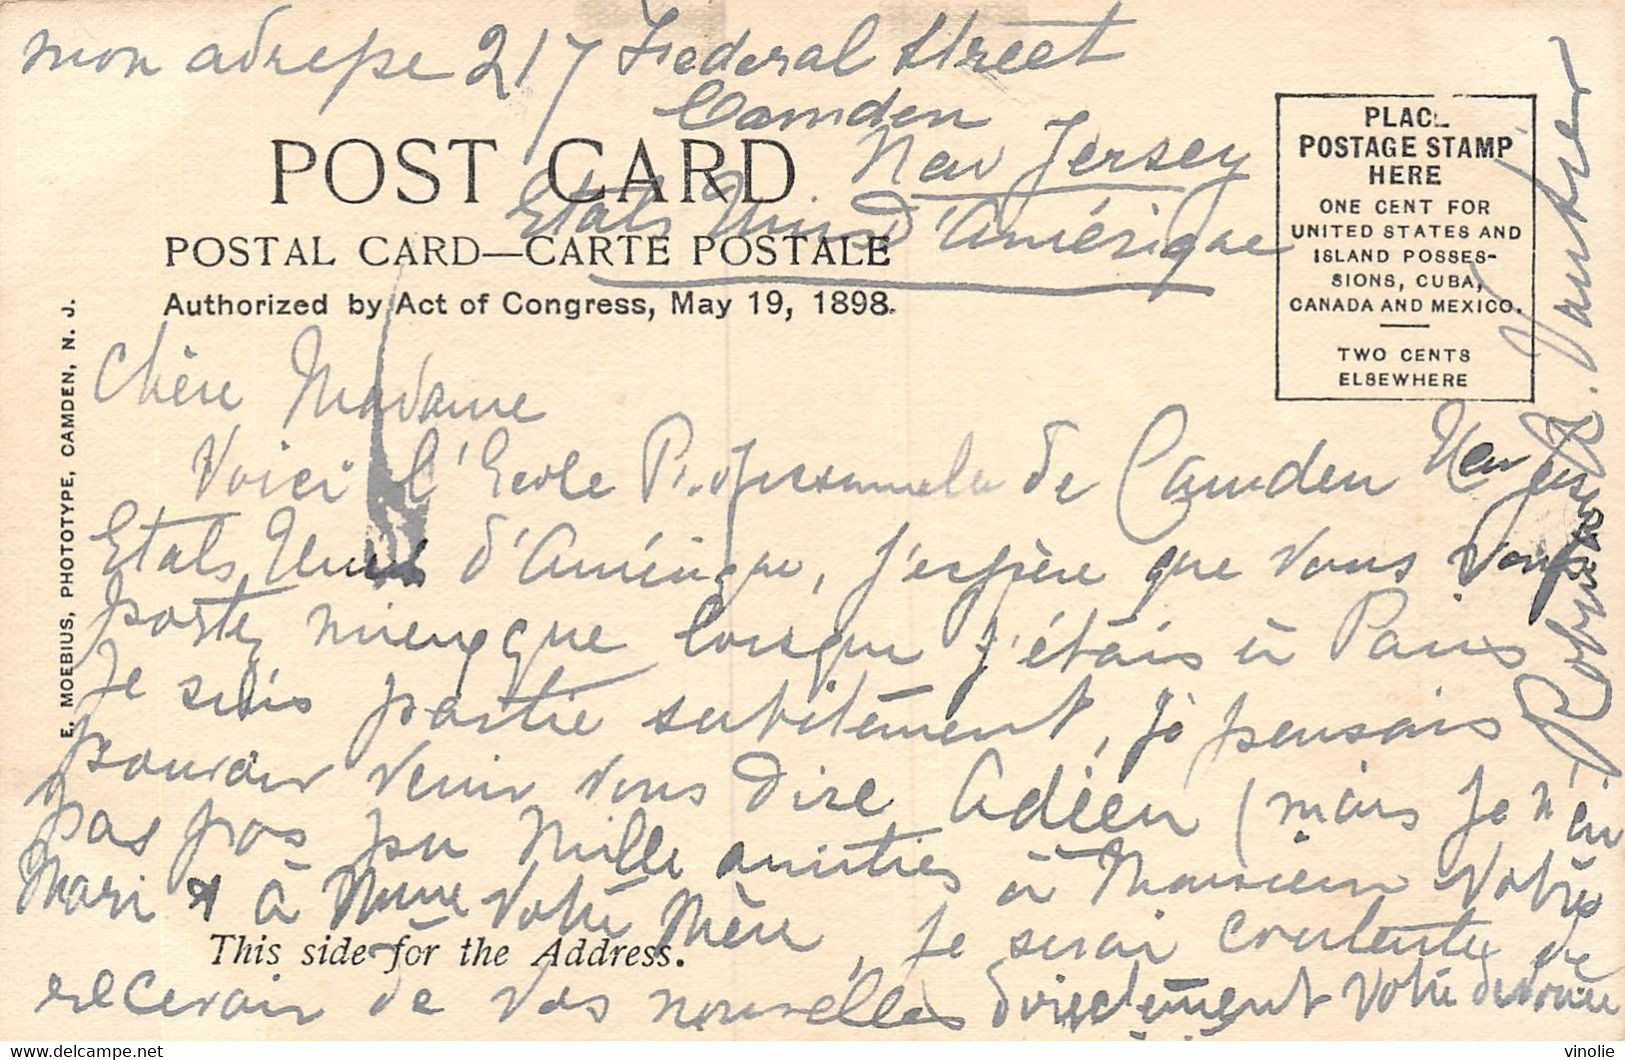 mon adresse 217 Federal Street
Camden
New Jersey
Etats Unis d'Amérique
POST CARD
POSTAL CARD—CARTE POSTALE
Authorized by Act of Congress, May 19, 1898.
PLACE
POSTAGE STAMP
HERE
ONE CENT FOR
UNITED STATES AND
ISLAND POSSES-
SIONS, CUBA,
CANADA AND MEXICO.
TWO CENTS
ELSEWHERE
E. MOEBIUS, PHOTOTYPE, CAMDEN, N. J.
Chère Madame
Voici l'Ecole Professionnelle de Camden New Jersey
Etats Unis d'Amérique, j'espère que vous vous
portez mieux que lorsque j'étais à Paris
Je suis partie subitement, je pensais
pouvoir venir vous dire Adieu (mais je n'ai
pas pas pu Mille amitiés à Monsieur votre
Mari à Mme votre Mère, je serai contente de
recevoir de vos nouvelles directement votre dévouée
This side for the Address.
vinolie